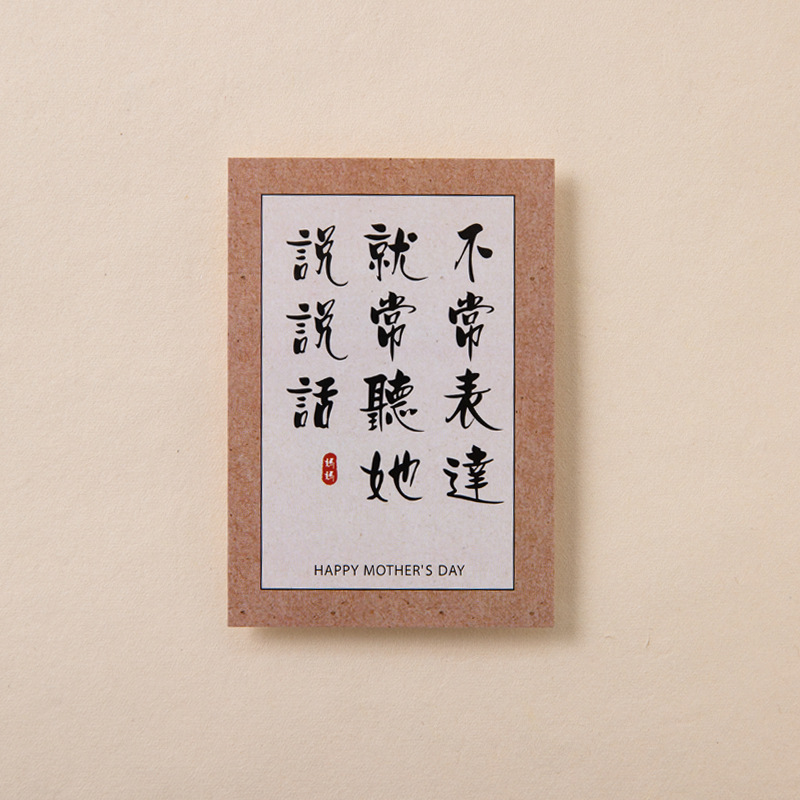 不常表達
就常聽她
說說話
媽媽
HAPPY MOTHER'S DAY